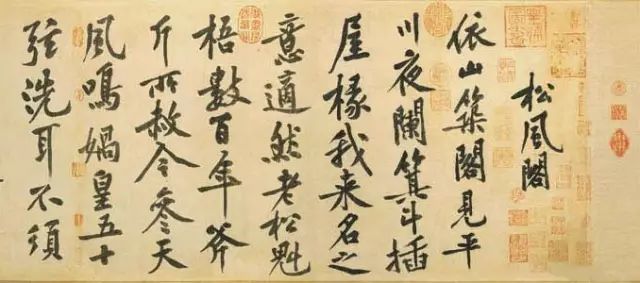 松風閣
依山築閣見平
川夜闌箕斗插
屋椽我来名之
意適然老松魁
梧數百年斧
斤所赦今参天
風鳴媧皇五十
弦洗耳不須